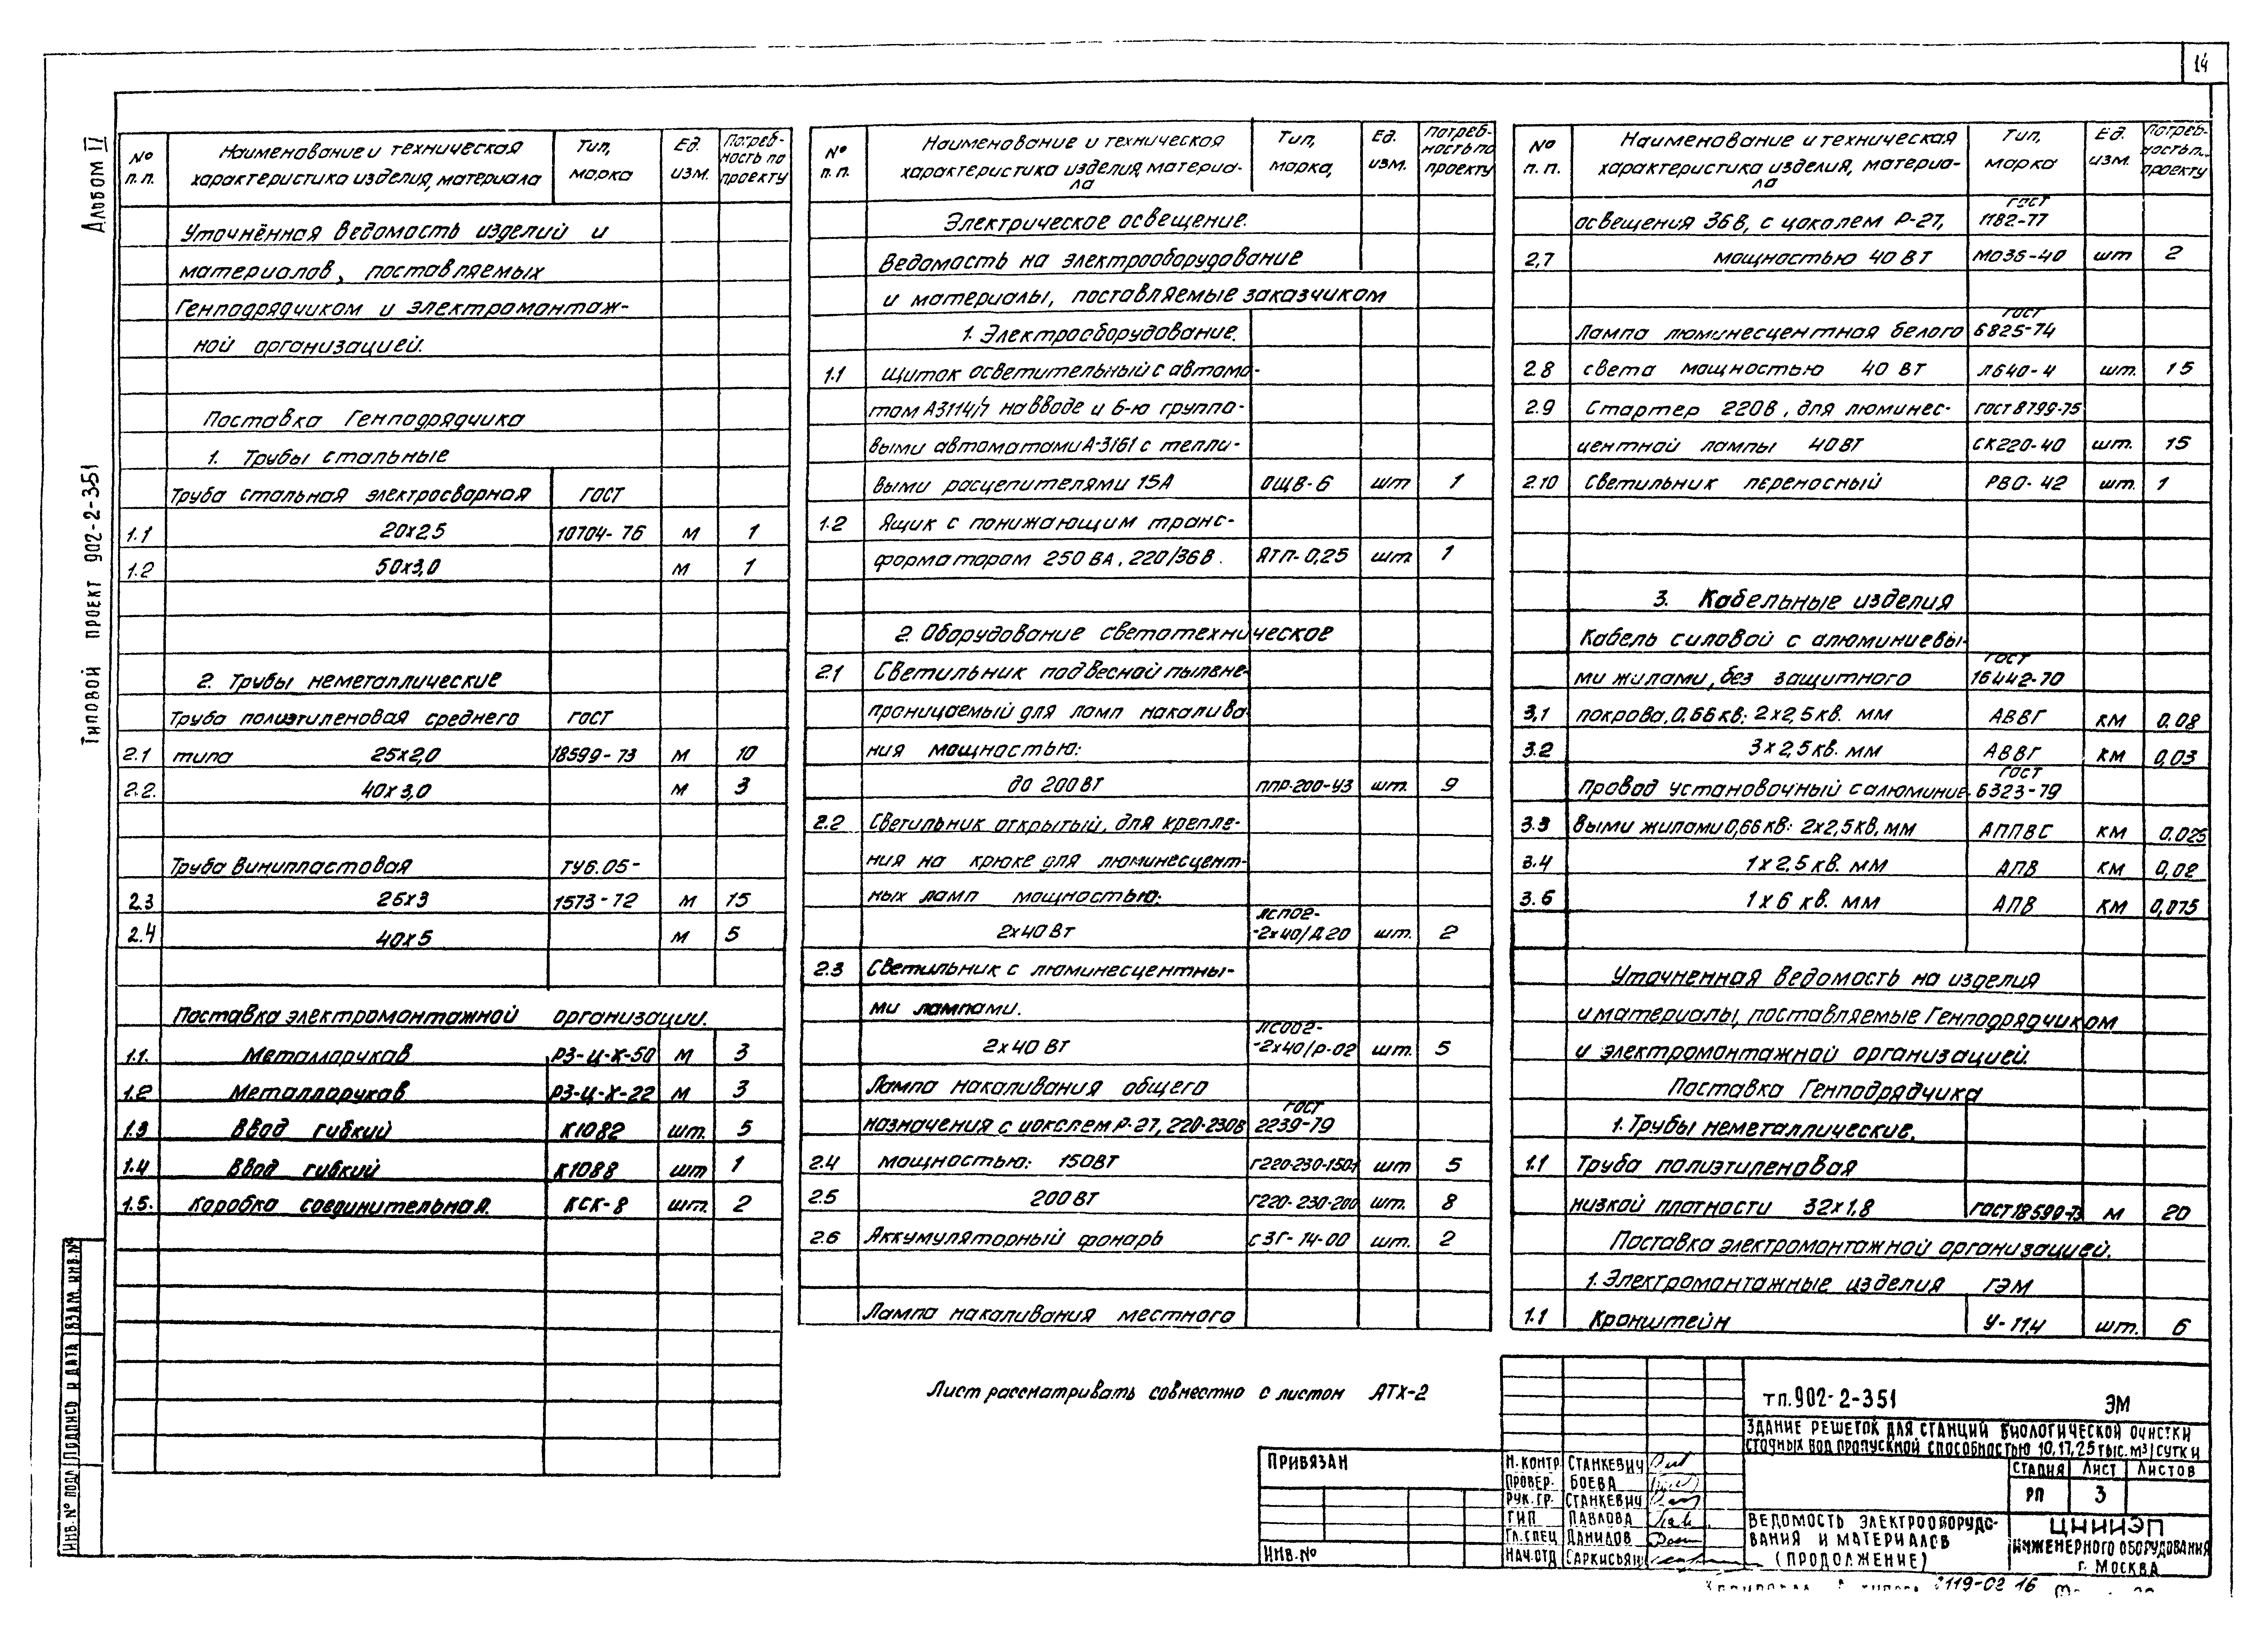 14
Альбом II
Типовой проект 902-2-351
№ п.п. Наименование и техническая характеристика изделия, материала Тип, марка Ед. изм. Потребность по проекту
Уточнённая ведомость изделий и
материалов, поставляемых
Генподрядчиком и электромонтаж-
ной организацией.
Поставка Генподрядчика
1. Трубы стальные
Труба стальная электросварная ГОСТ
1.1 20х25 10704-76 м 1
1.2 50х3,0 м 1
2. Трубы неметаллические
Труба полиэтиленовая среднего ГОСТ
2.1 типа 25х2,0 18599-73 м 10
2.2. 40х3,0 м 3
Труба винипластовая ТУ6.05-
2.3 25х3 1573-72 м 15
2.4 40х5 м 5
Поставка электромонтажной организации.
1.1. Металлорукав РЗ-Ц-Х-50 м 3
1.2 Металлорукав РЗ-Ц-Х-22 м 3
1.3 Ввод гибкий К1082 шт. 5
1.4 Ввод гибкий К1088 шт 1
1.5. Коробка соединительная. КСК-8 шт. 2
№ п.п. Наименование и техническая характеристика изделия, материала Тип, марка, Ед. изм. Потребность по проекту
Электрическое освещение.
Ведомость на электрооборудование
и материалы, поставляемые заказчиком
1. Электрооборудование.
1.1 Щиток осветительный с автома-
том А3114/7 на вводе и 6-ю группо-
выми автоматами А-3161 с тепло-
выми расцепителями 15А ОЩВ-6 шт 1
1.2 Ящик с понижающим транс-
форматором 250 ВА, 220/36В. ЯТП-0,25 шт 1
2. Оборудование светотехническое
2.1 Светильник подвесной пылене-
проницаемый для ламп накалива-
ния мощностью:
до 200 Вт ППР-200-У3 шт. 9
2.2 Светильник открытый, для крепле-
ния на крюке для люминесцент-
ных ламп мощностью:
2х40 Вт ЛСП02-
-2х40/Д20 шт. 2
2.3 Светильник с люминесцентны-
ми лампами.
2х40 Вт ЛСО02-
-2х40/Р-02 шт. 5
Лампа накаливания общего
назначения с цоколем Р-27, 220-230В ГОСТ 2239-79
2.4 мощностью: 150Вт Г220-230-150-1 шт 5
2.5 200 Вт Г220-230-200 шт. 8
2.6 Аккумуляторный фонарь СЗГ-14-00 шт. 2
Лампа накаливания местного
№ п.п. Наименование и техническая характеристика изделия, материала Тип, марка Ед. изм. Потребность п. проекту
освещения 36В, с цоколем Р-27, ГОСТ 1182-77
2,7 мощностью 40 Вт МО36-40 шт 2
Лампа люминесцентная белого ГОСТ 6825-74
2.8 света мощностью 40 Вт ЛБ40-4 шт. 15
2.9 Стартер 220В, для люминес- ГОСТ 8799-75
центной лампы 40Вт СК220-40 шт. 15
2.10 Светильник переносный РВО-42 шт. 1
3. Кабельные изделия
Кабель силовой с алюминиевы-
ми жилами, без защитного ГОСТ 16442-70
3,1 покрова, 0,66 кв: 2х2,5 кв. мм АВВГ км 0.08
3.2 3х2,5 кв. мм АВВГ км 0,03
Провод установочный с алюминие- ГОСТ 6323-79
3.3 выми жилами 0,66 кв: 2х2,5 кв, мм АППВС км 0.025
3.4 1х2,5 кв. мм АПВ км 0,02
3.5 1х6 кв. мм АПВ км 0,075
Уточненная ведомость на изделия
и материалы, поставляемые Генподрядчиком
и электромонтажной организацией.
Поставка Генподрядчика
1. Трубы неметаллические.
1.1 Труба полиэтиленовая
низкой плотности 32х1,8 ГОСТ18599-73 м 20
Поставка электромонтажной организацией.
1. Электромонтажные изделия ГЭМ
1.1 Кронштейн У-114 шт. 6
Лист рассматривать совместно с листом АТХ-2
Привязан
Инв.№
Н.контр Станкевич
Провер. Боева
Рук.гр. Станкевич
ГИП Павлова
Гл.спец Данилов
Нач.отд Саркисьян
тп.902-2-351 ЭМ
Здание решеток для станций биологической очистки
сточных вод пропускной способностью 10,17,25 тыс. м3/сутки
Стадия Лист Листов
РП 3
Ведомость электрооборудо-
вания и материалов
(продолжение)
ЦНИИЭП
инженерного оборудования
г. Москва
Инв.№ подл Подпись и дата Взам. инв.№
119-02 16